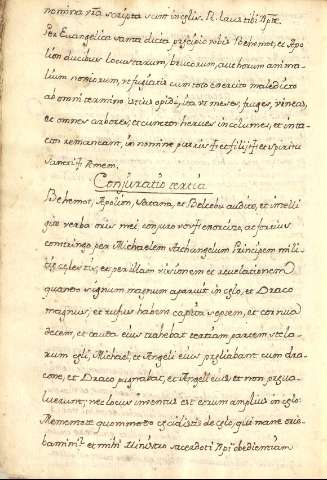 nomina vr̃a scripta sunt in celis. R. laus tibi Xpẽ.
Per Evangelica santa dicta precipio vobis Beemot, et Apo
lion ducibus locustarum, brucorum, aut horum anima
lium noxiorum, ut fugiatis cum toto exercitu maledicto
ab omni termino istius opidi, ita ut meses, fruges, vineas,
et omnes arbores, et cunctas herbas incolumes, et inta
ctas remaneant, in nomine patris ✝ et filij ✝ et spiritu
sancti ✝ Amen.
Conjuratio tertia
Behemot, Apolion, Satana, et Belcebu audite, et intelli
gite verba oris mei conjuro vos ✝ exorcizo, ac fortius
constringo per Michaelem Archangelum Principem mili
tię celestis, et per illam visionem et revelationem
quando signum magnum aparuit in cęlo, et Draco
magnus, et rufus habens capita septem, et cornua
decem, et cauda eius trahebat tertiam partem stela
rum cęli, Michael, et Angeli eius pręliabant cum dra
cone, et Draco pugnabat, et Angeli eius, et non pręva
luerunt; nec locus inventus est eorum amplius in cęlo:
Mementote quommodo cecidistis de cęlo, qui mane orie
bamini: et mihi Ministro sacerdoti Xpĩ obedientiam